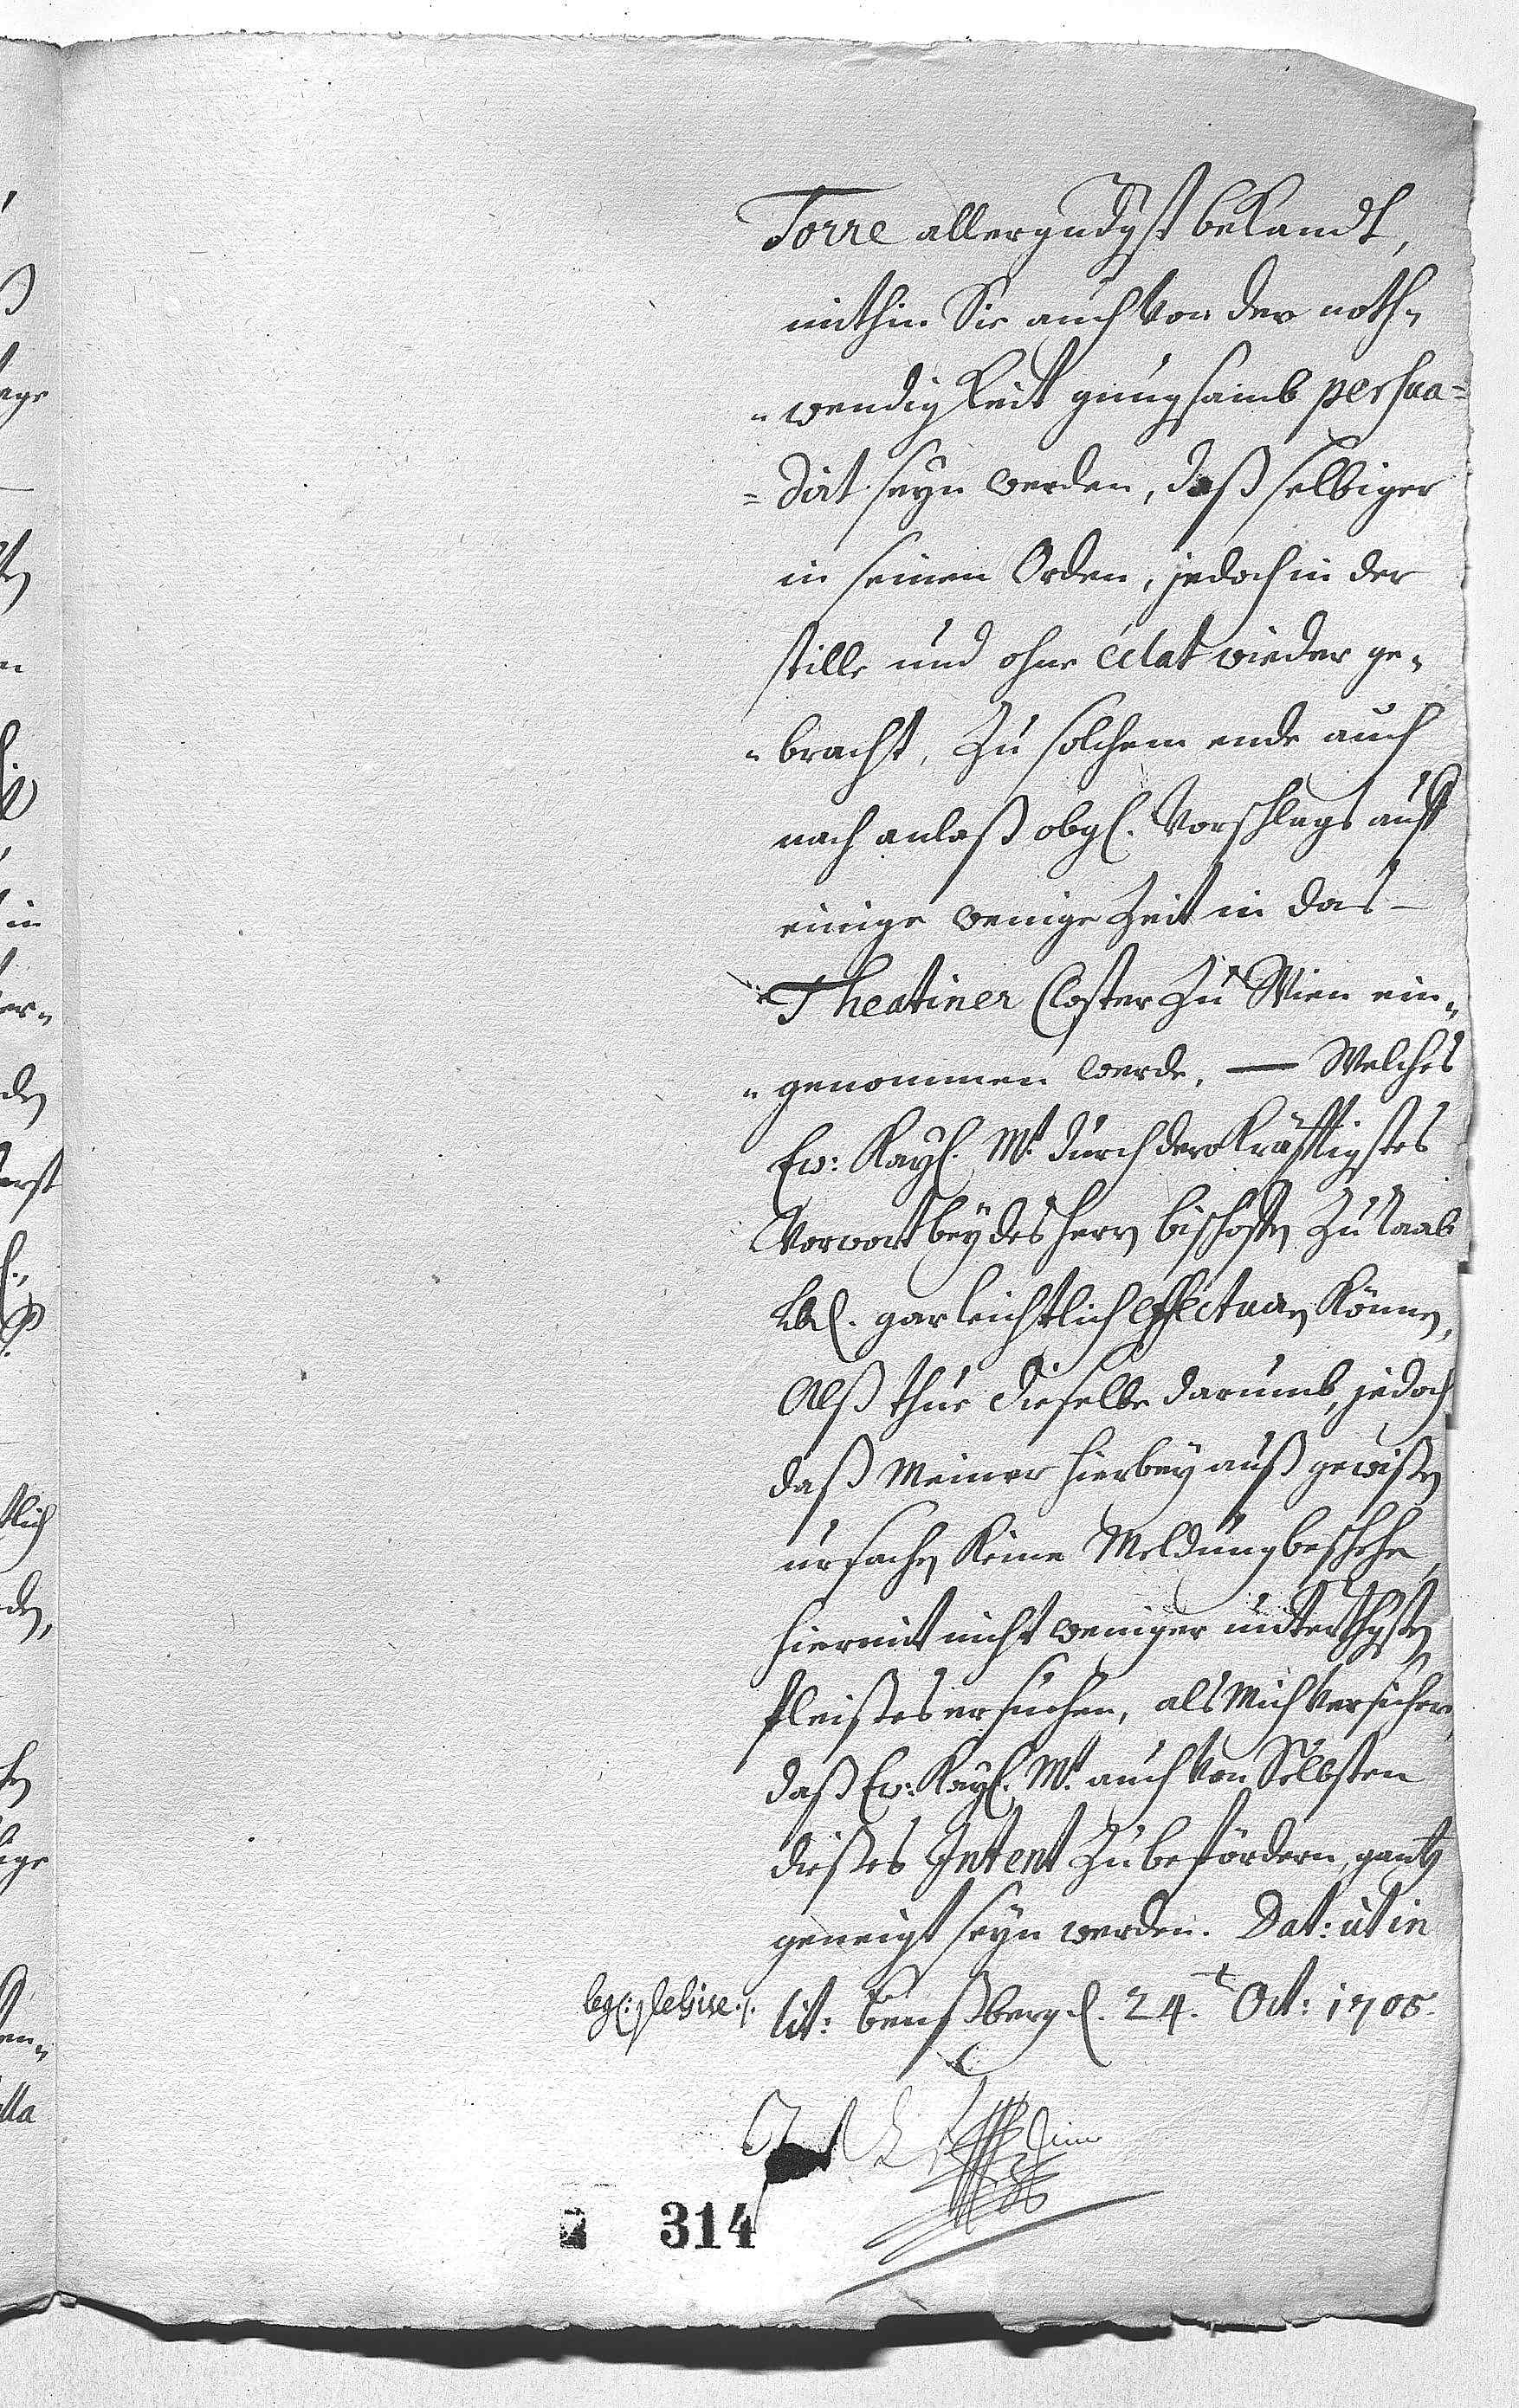 Torre allergndgst bekandt,
mithin Sie auch von der noth-
-wendigkeit gnugsamb persua=
=dirt seyn werden, daß selbiger
in seinen Orden, jedoch in der
stille und ohne éclat wieder ge-
-bracht, zu solchem ende auch
nach anlaß obgl. Vorschlags auff
einige wenige Zeit in das
Theatiner Closter zu Wien ein-
-genommen werde. — Welches
Ew: Kayl. Mt. durch dero kräfftigstes
Vorwort bey des herrn bischoffen zu Raab
Lbd. gar leichtlich effectuiren können,
Alß thue dieselbe darumb, jedoch
daß Meiner hierbey auß gewißen
ursachen keine Meldung beschehe,
hiermit nicht weniger unterthgsten
fleißes ersuchen, als Mich versichere,
daß Ew: Kayl. Mt. auch von Selbsten
dießes Intent zu befördern, gantz
geneigt seyn werden. Dat: ut in
lit: Benßberg d. 24.t Oct: 1705.
314